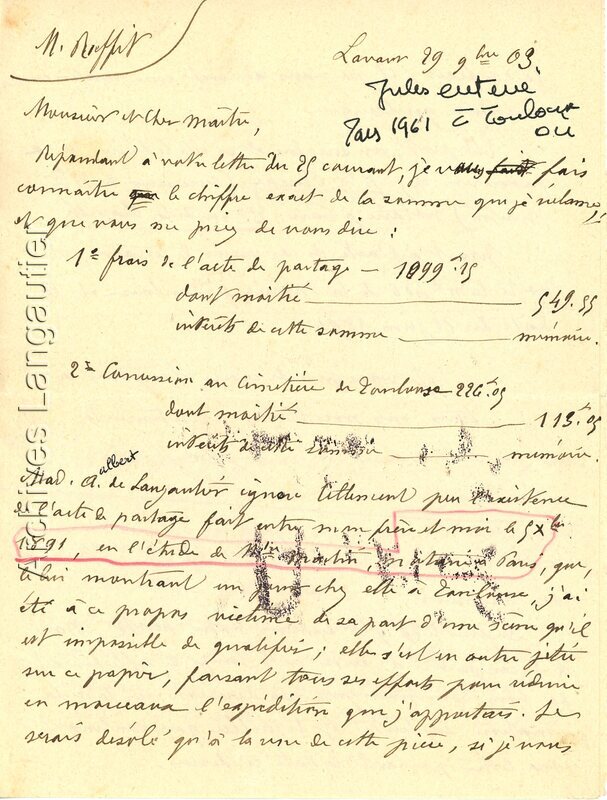 M. Boffit
Lavaur 29 9bre 03.
Jules enterré
Paris 1961 à Toulouse
ou
Monsieur et Cher Maître,
Répondant à votre lettre du 25 courant, je vous fais
connaître le chiffre exact de la somme que je réclame,
et que vous me priez de vous dire :
1º frais de l'acte de partage — 1099f.15
dont moitié 549.55
intérêts de cette somme mémoire.
2º Concession au cimetière de Toulouse 226f.05
dont moitié 113.05
intérêts de cette somme mémoire.
albert
Mad. A. de Langautier ignore tellement peu l'existence
de l'acte de partage fait entre mon frère et moi le 5 Xbre
1891, en l'étude de Me Martin, notaire à Paris, que,
le lui montrant un jour chez elle à Toulouse, j'ai
été à ce propos victime de sa part d'une scène qu'il
est impossible de qualifier ; elle s'est en outre jetée
sur ce papier, faisant tous ses efforts pour réduire
en morceaux l'expédition que j'apportais. Je
serais désolé qu'à la vue de cette pièce, si je vous
Archives Langautier